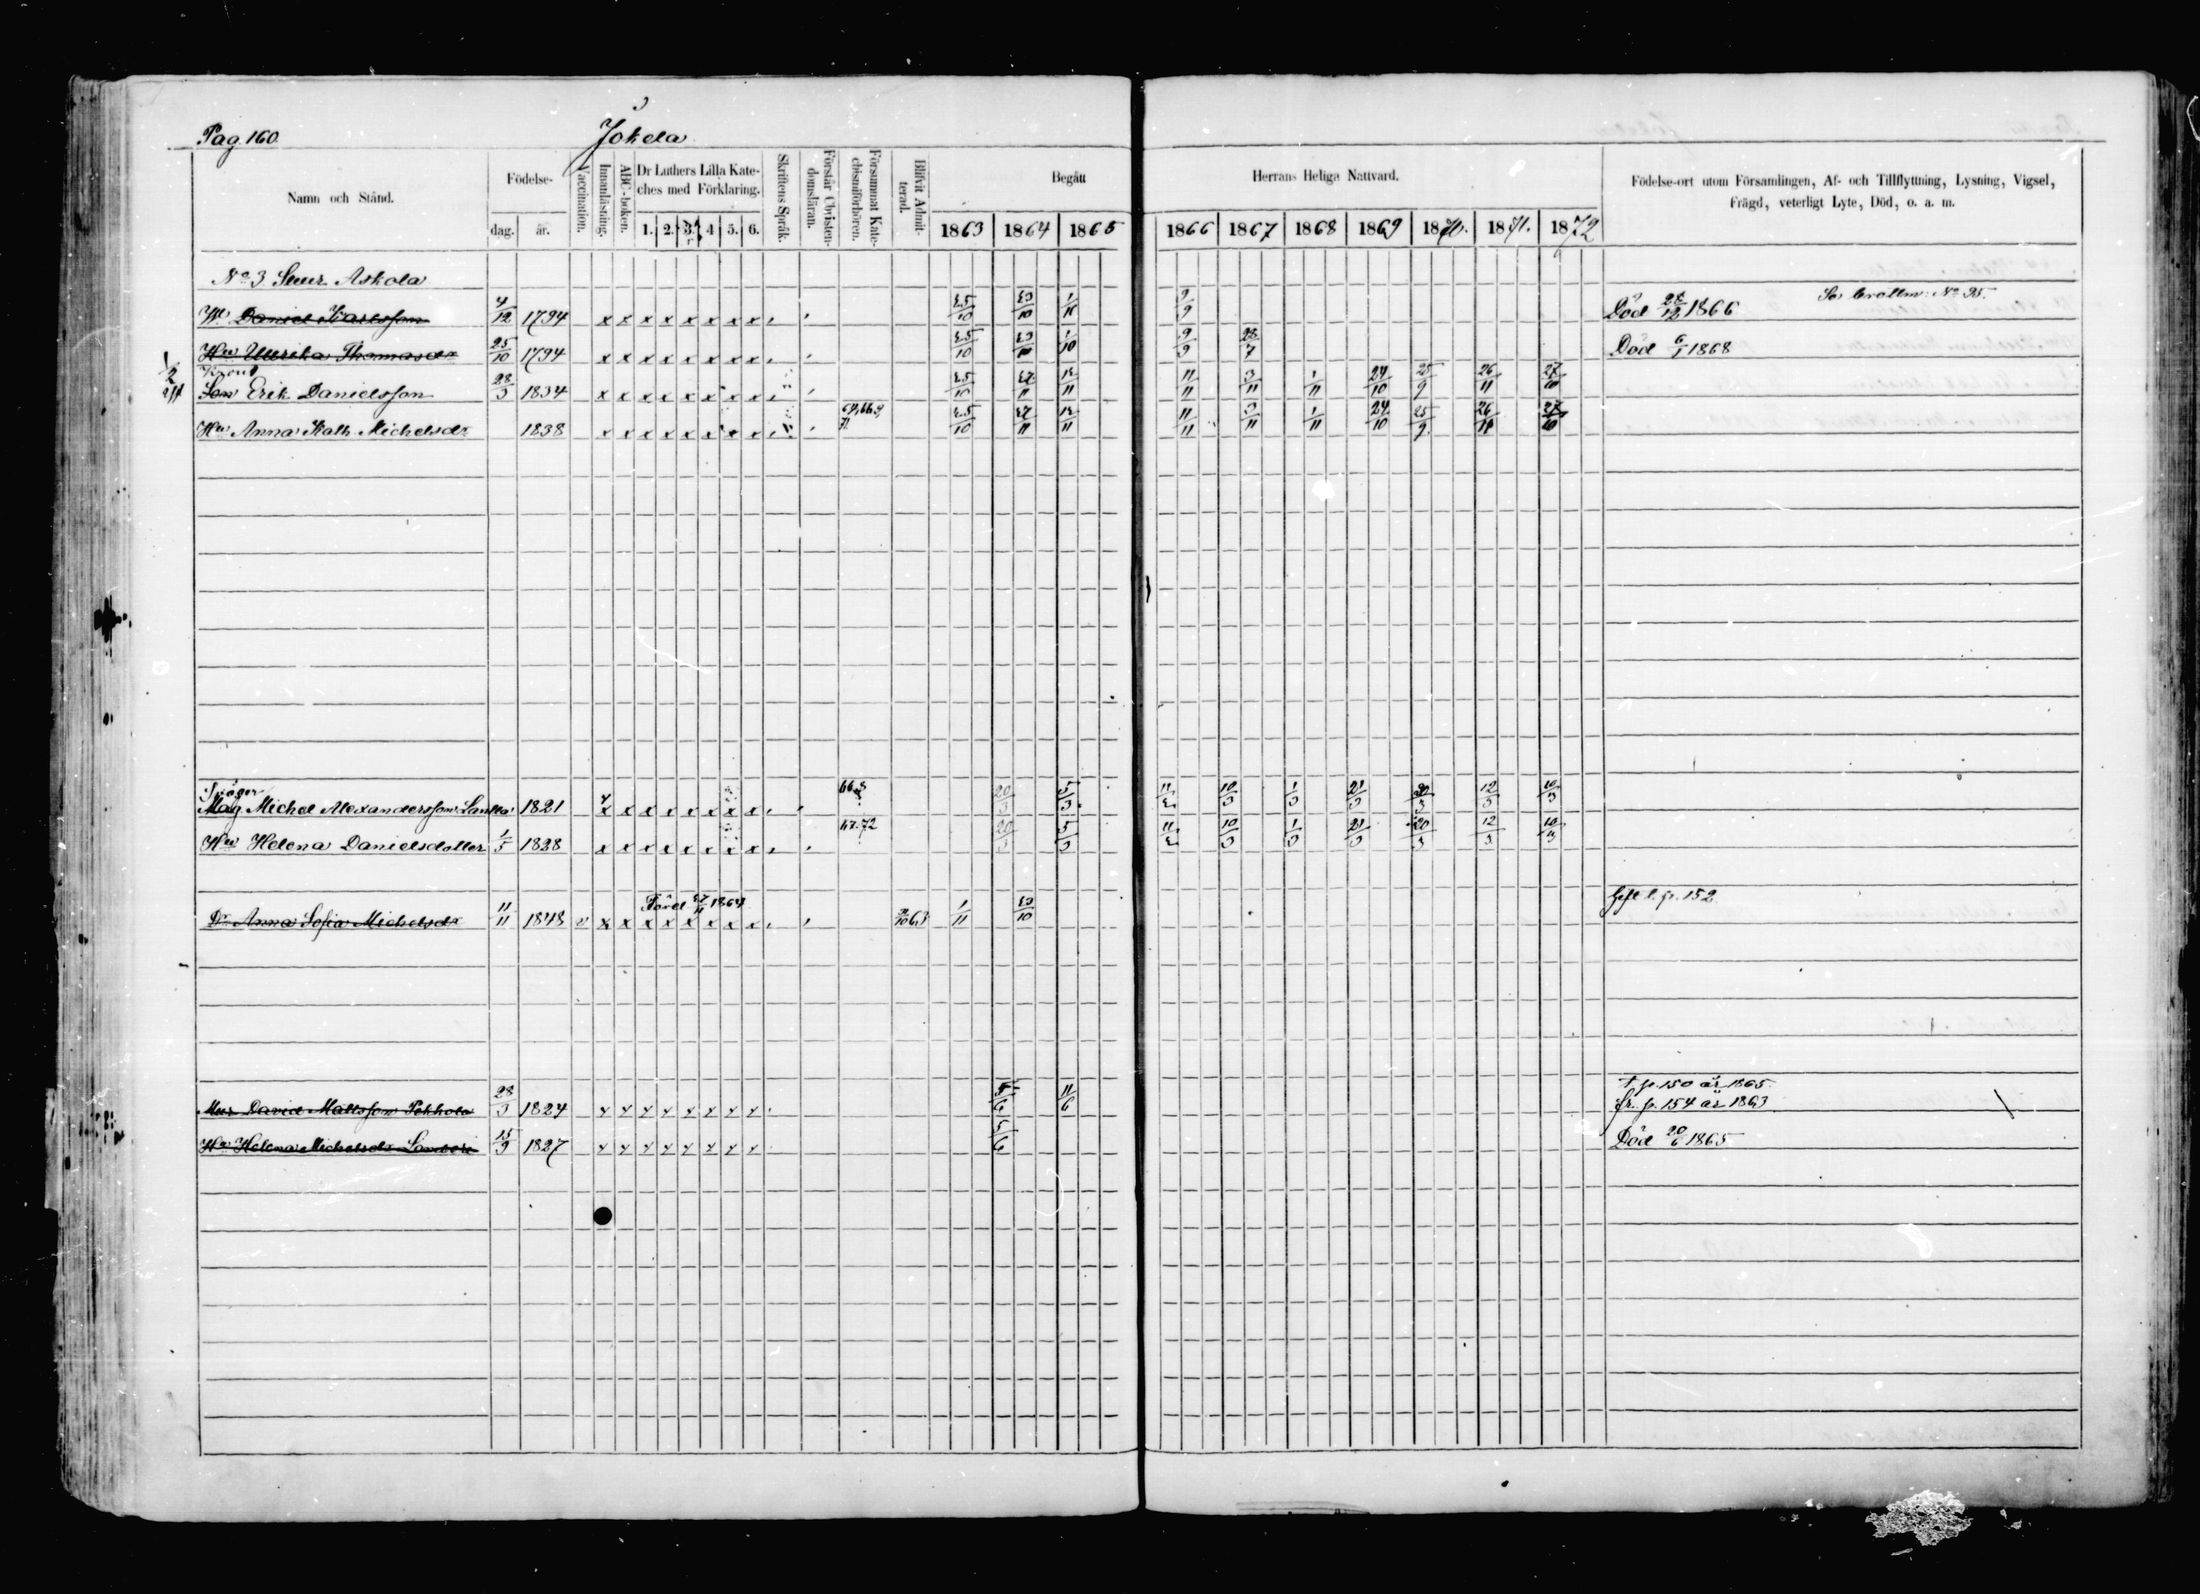 Pag. 160.
Jokela
Namn och Stånd.
Födelse-
dag.
år.
Vaccination.
Innanläsning.
ABC-boken.
Dr Luthers Lilla Kate-
ches med Förklaring.
1. 2. 3. 4 5. 6.
Skriftens Språk.
Förstår Christen-
domsläran.
Försummat Kate-
chismiförhören.
Blifvit Admit-
terad.
Begått
1863 1864 1865
Herrans Heliga Nattvard.
1866 1867 1868 1869 1870. 1871. 1872
Födelse-ort utom Församlingen, Af- och Tillflyttning, Lysning, Vigsel,
Frägd, veterligt Lyte, Död, o. a. m.
No 3 Stuur Askola
Daniel Karlsson 4/12 1794 x x x x x x x x 1/11 9/9 Död 28/12 1866
Hu Ullrika Thomasdr 25/10 1794 x x x x x x x x 1/10 9/9 28/7 Död 6/1 1868
1/2
Son Erik Danielsson 28/3 1834 x x x x x x x x 11/11 3/11 1/11 24/10 25/9 26/11 27/10
Hu Anna Kath. Michelsdr 1838 x x x x x x x x 11/11 3/11 1/11 24/10 25/9 26/11 27/10
Måg Michel Alexandersson 1821 x x x x x x x x 20/3 5/3 11/3 10/3 1/3 21/3 20/3 12/3 10/3
Hu Helena Danielsdotter 1/5 1828 x x x x x x x x 67.72 20/3 5/3 11/3 10/3 1/3 21/3 20/3 12/3 10/3
Dr Anna Sofia Michelsdr 11/11 1848 v x x x x x x x x 1/11 p. 152.
t. p. 150 år 1865.
David Mattsson 28/3 1824 5/6 11/6 fr. p. 154 år 1863
Hu Helena Michelsdr 15/9 1827 5/6 Död 20/6 1865